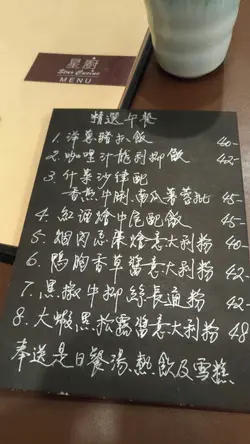 星廚
Star Cuisine
MENU
精選午餐
1. 洋葱豬扒飯 40-
2. 咖喱汁龍利柳飯 42-
3. 什菜沙律配
香燕牛脷、南瓜薯蓉批 45-
4. 紅酒燴牛尾配飯 45-
5. 烟肉忌廉燴意大利粉 40
6. 鴨胸香草醬意大利粉 42-
7. 黑椒牛柳絲長通粉 42-
8. 大蝦黑松露醬意大利粉 48
奉送是日餐湯、熱飲及雪糕